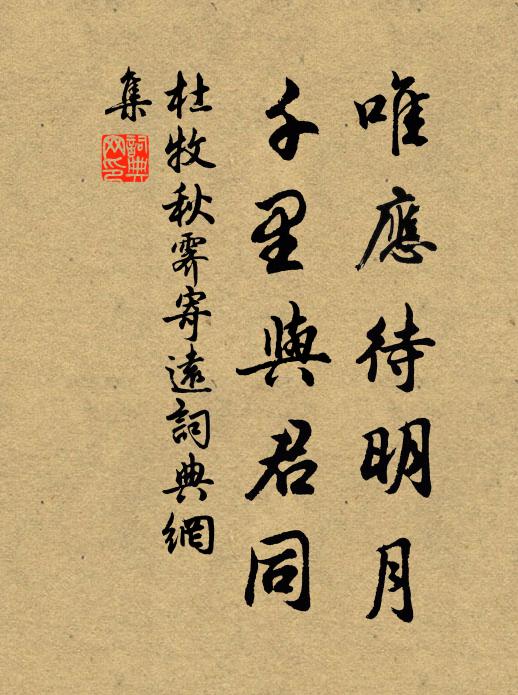 唯應待明月
千里與君同
杜牧秋霽寄遠詞典網
集
詞典
网印